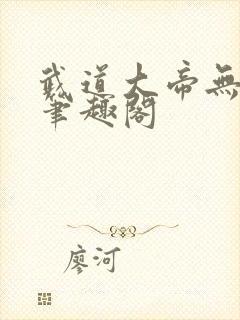 武道大帝無
筆趣閣
廖河